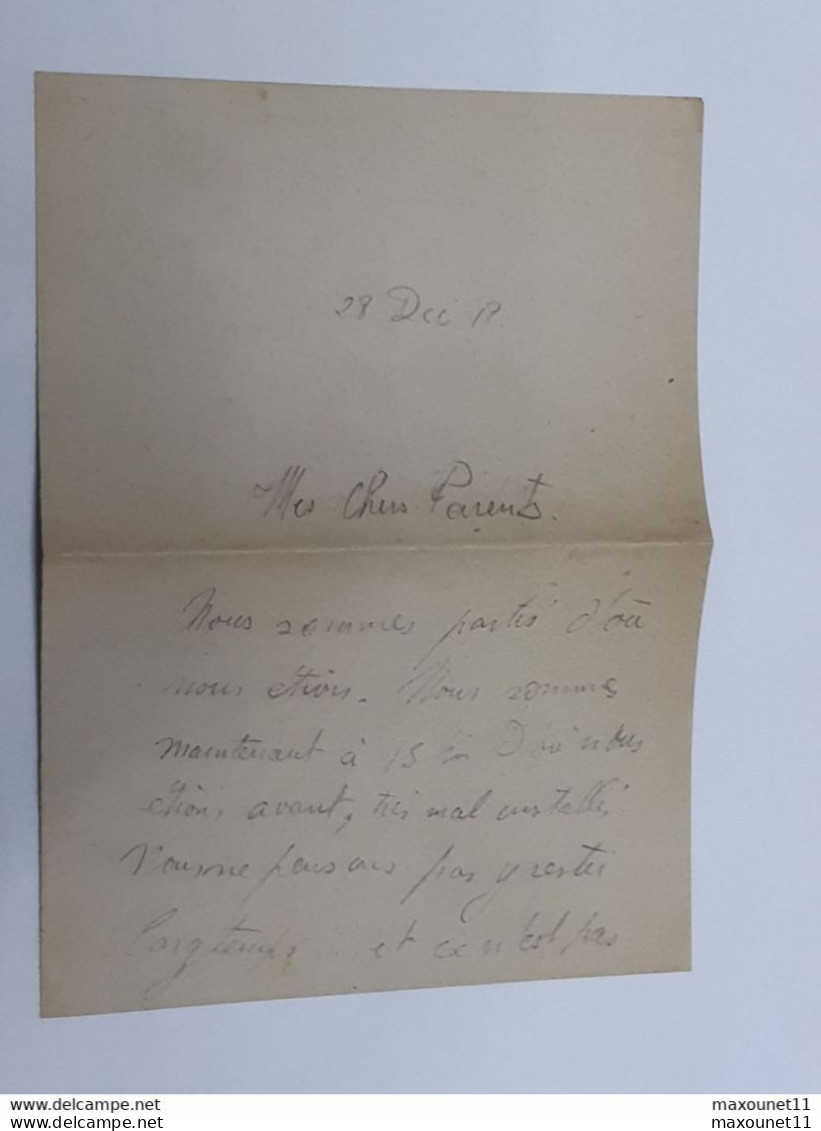 28 Dec 17
Mes Chers Parents.
Nous sommes partis d'où
nous étions. Nous sommes
maintenant à 15 Km d'où nous
étions avant, très mal installés
Nous ne pensons pas y rester
longtemps... et ce n'est pas
www.delcampe.net
maxounet11
www.delcampe.net
maxounet11